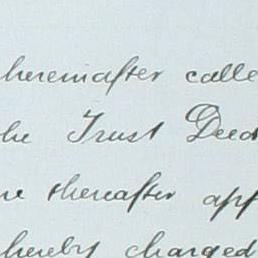 hereinafter calle
he Trust Deed
re thereafter app
hereby charged